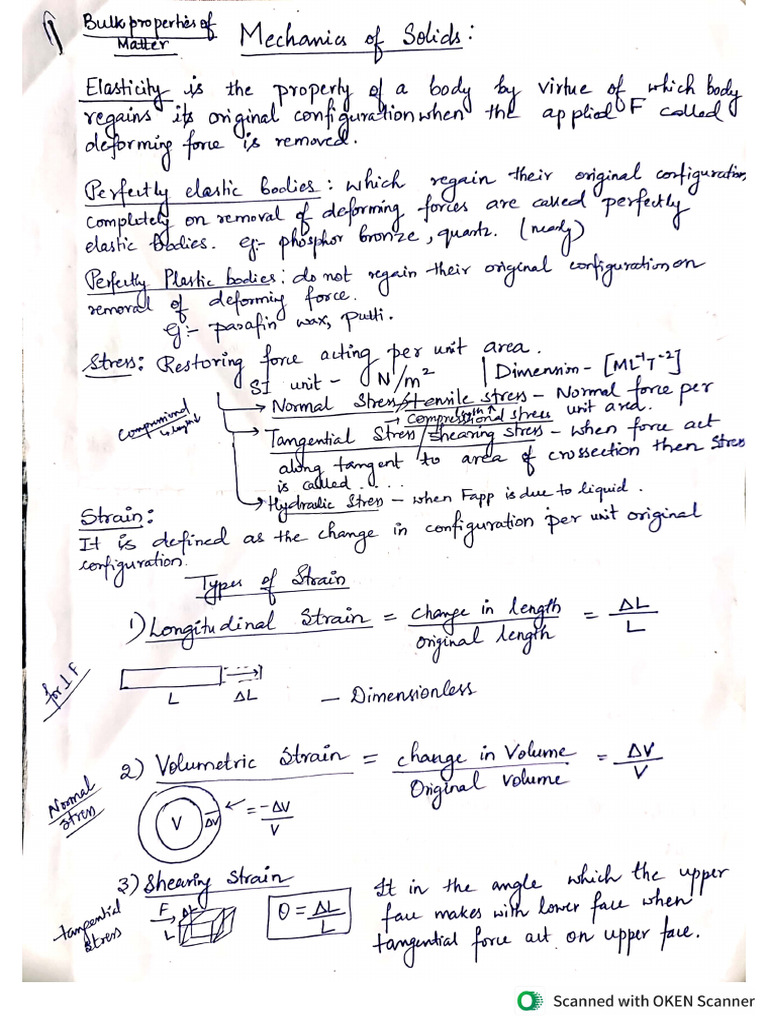 1) Bulk properties of
Matter
Mechanics of Solids:
Elasticity is the property of a body by virtue of which body
regains its original configuration when the applied F called
deforming force is removed.
Perfectly elastic bodies: which regain their original configuration
completely on removal of deforming forces are called perfectly
elastic bodies. eg:- phosphor bronze, quartz. (nearly)
Perfectly Plastic bodies: do not regain their original configuration on
removal of deforming force.
eg:- parafin wax, putti.
Stress: Restoring force acting per unit area.
SI unit - N/m² | Dimension - [ML⁻¹T⁻²]
→ Normal Stress/tensile stress - Normal force per
unit area.
length ↑
→ Compressional stress
Compressional
↳ length
→ Tangential Stress/shearing stress - when force act
along tangent to area of crossection then stress
is called . . . .
→ Hydraulic Stress - when Fapp is due to liquid.
Strain:
It is defined as the change in configuration per unit original
configuration.
Types of Strain
1) Longitudinal Strain = change in length / original length = ΔL / L
for ⊥ F
L ΔL
- Dimensionless
2) Volumetric Strain = change in Volume / Original volume = ΔV / V
Normal
stress
V ΔV ← = -ΔV / V
3) Shearing Strain
tangential
stress
F ΔL
L
θ = ΔL / L
It in the angle which the upper
face makes with lower face when
tangential force act on upper face.
Scanned with OKEN Scanner